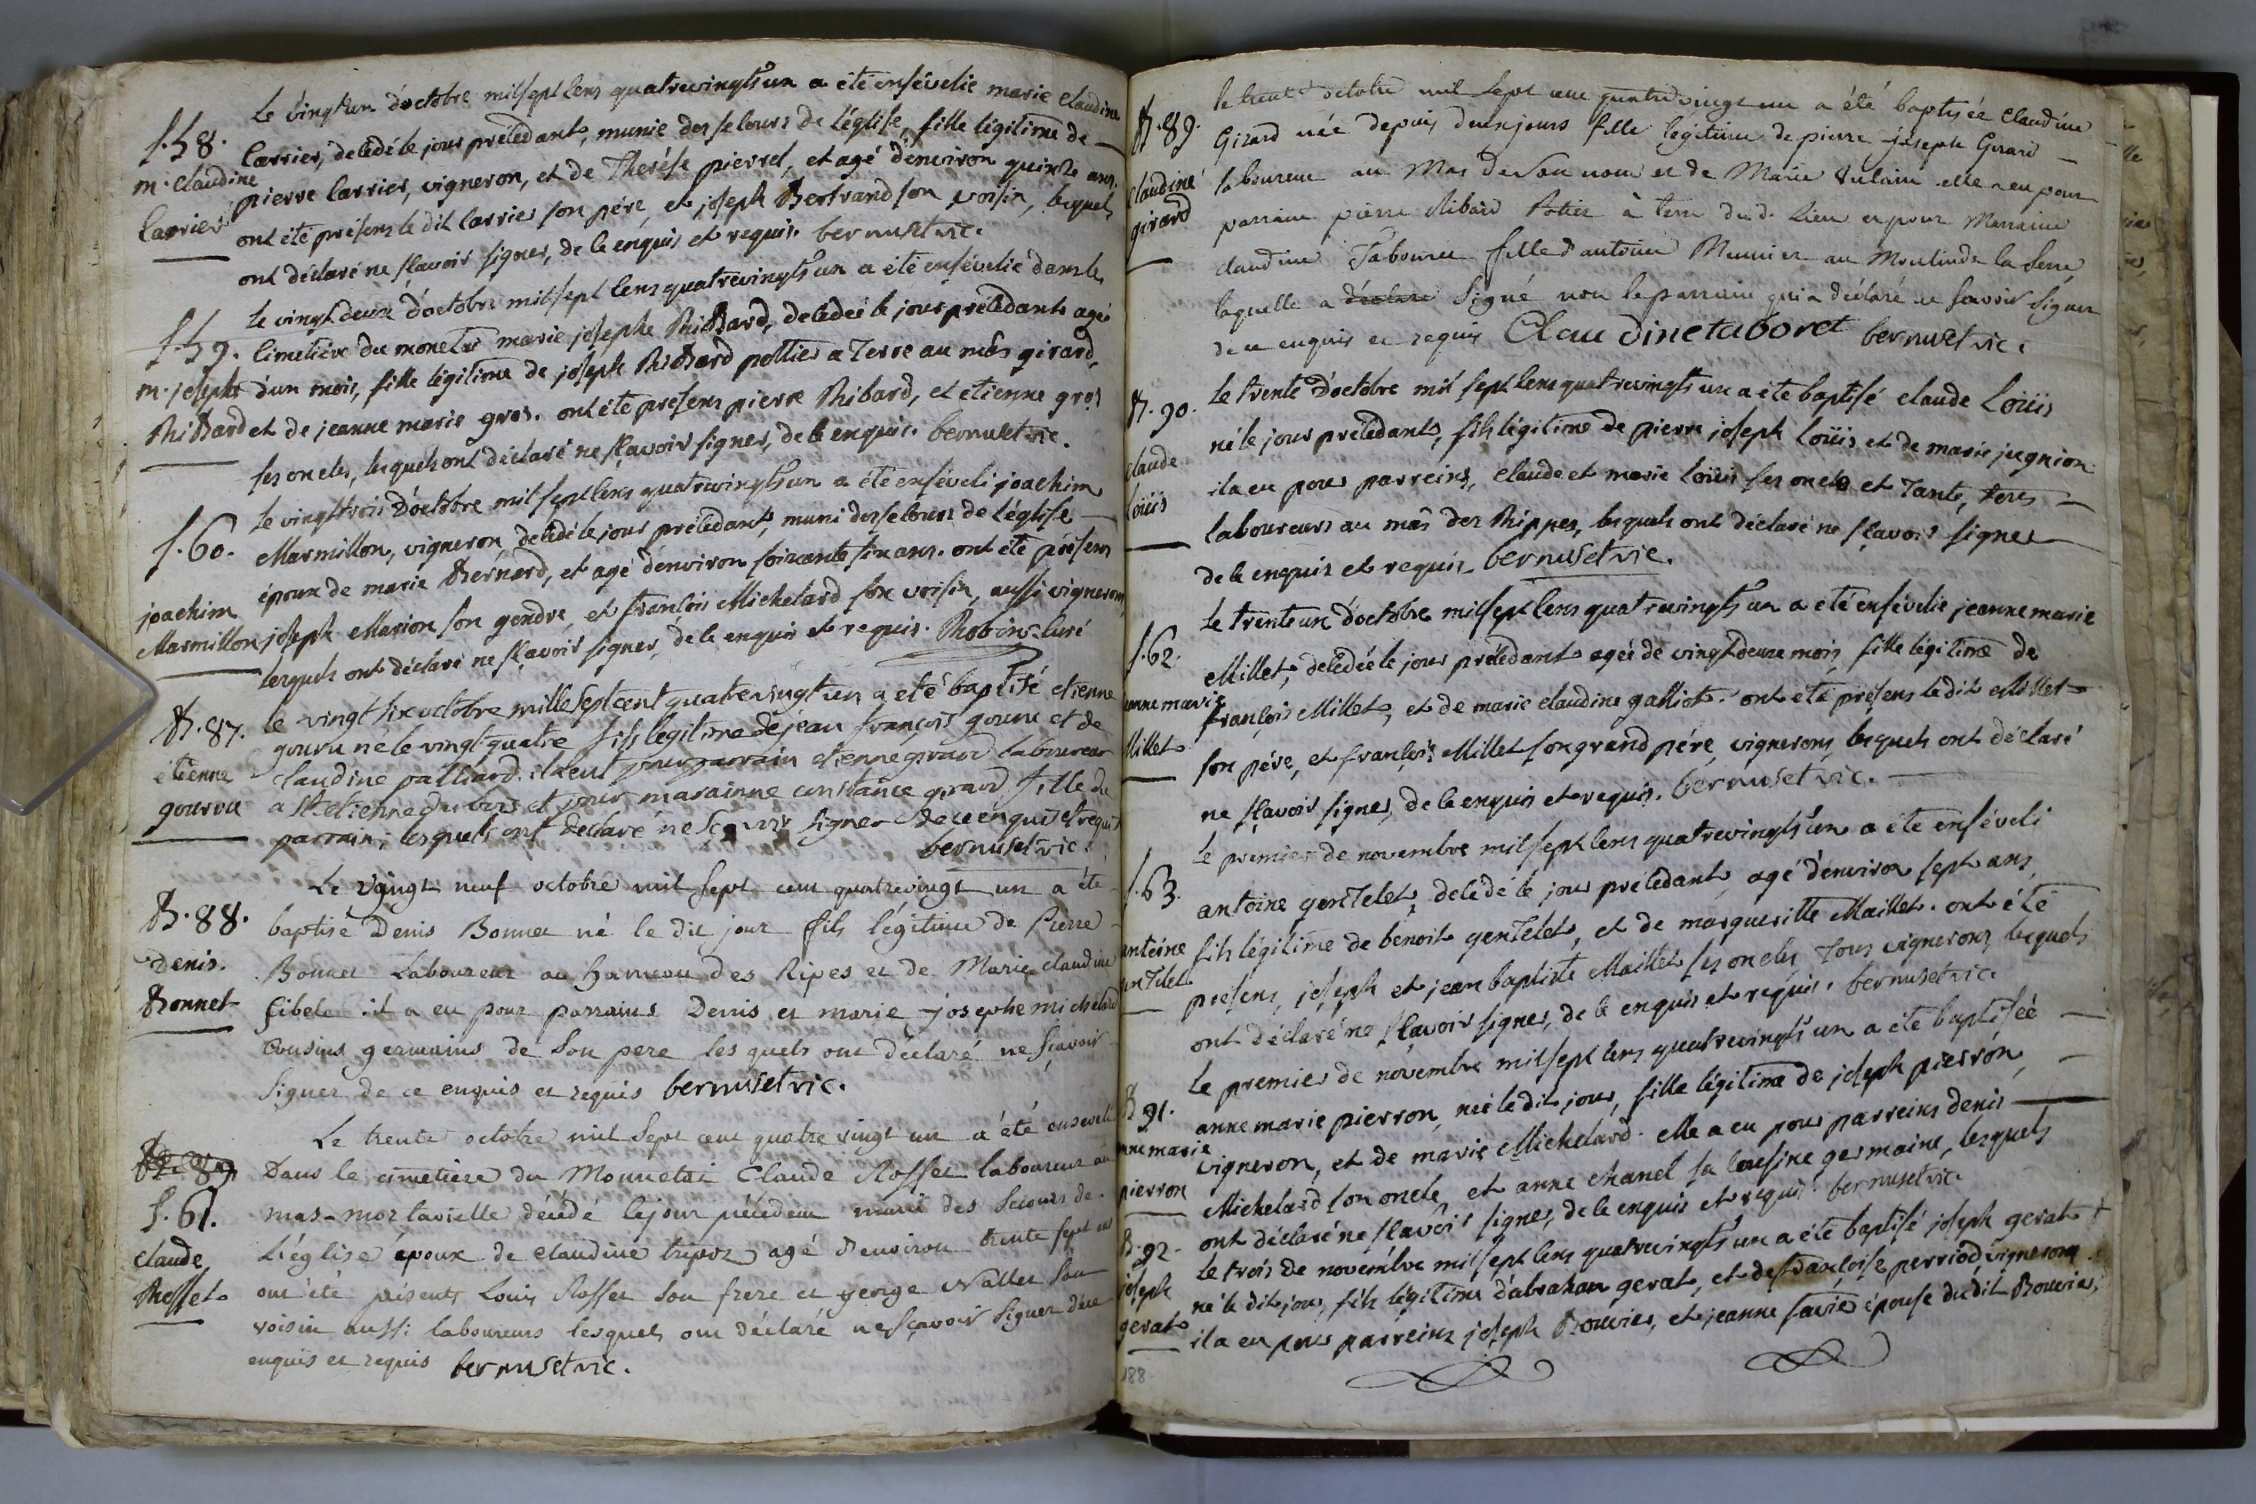 S. 58.
m. claudine
Carrier
Le vingt un d'octobre mil sept cens quatrevingts un a été ensévelie marie claudine
Carrier, décédé le jour précédant, munie des secours de l'église, fille légitime de
pierre Carrier, vigneron, et de Therése pierrel, et agé d'environ quinze ans.
ont été présens le dit Carrier son pére, et joseph Bertrand son voisin, lesquels
ont déclaré ne sçavoir signer, de ce enquis et requis. bernuset vic.
S. 59.
m. josephe
Ribard
Le vingt deux d'octobre mil sept cens quatrevingts un a été ensévelie dans le
cimetiére du monetai marie josephe Ribard, décédeé le jour précédant agé
d'un mois, fille légitime de joseph Ribard pottier a Terre au mas girard,
et de jeanne marie gros. ont été présens pierre Ribard, et etienne gros
ses oncles, lesquels ont déclaré ne sçavoir signer, de ce enquis. bernuset vic.
S. 60.
joachim
Marmillon
Le vingt trois d'octobre mil sept cens quatrevingts un a été enséveli joachim
Marmillon, vigneron décédé le jour précédant, muni des secours de l'église
époux de marie Bernard, et agé d'environ soixante six ans. ont été présens
joseph Marion son gendre, et françois Michelard son voisin, aussi vignerons,
lesquels ont déclaré ne sçavoir signer, de ce enquis et requis. Robin curé
B. 87.
étienne
gourou
le vingt six octobre mille sept cent quatrevingt un a été baptisé etienne
né le vingt quatre fils legitime de jean françois et de
claudine palliard. il a eut pour parrain etienne girard laboureur
a St etienne du bois et pour marainne constance girard fille du
parrain; lesquels ont declaré ne sçavoir signer de ce enquis et requis
bernuset vic.
B. 88.
denis.
Bonnet
Le vingt neuf octobre mil sept cent quatrevingt un a été
baptisé Denis Bonnet né le dit jour fils légitime de Pierre
Bonnet Laboureur au hameau des Ripes et de Marie claudine
il a eu pour parrains Denis et marie josephe michelard
Cousins germains de son pere les quels ont déclaré ne sçavoir
signer de ce enquis et requis bernuset vic.
B. 89
S. 61.
claude
Rosset
Le trente octobre mil sept cent quatre vingt un a été enseveli
Dans le cimetiere du Monnetai Claude Rosset laboureur au
mas-mortavielle décédé le jour précédent muni des secours de
L'église époux de claudine agé d'environ trente sept ans
ont été présents Louis Rosset son frere et george Nallet son
voisin aussi laboureurs lesquels ont déclaré ne sçavoir signer de ce
enquis et requis bernuset vic.
B. 89.
claudine
girard
le trente octobre mil sept cent quatrevingt un a été baptisée claudine
Girard née depuis deux jours fille légitime de pierre joseph Girard
laboureur au Mas de son nom et de Marie elle a eu pour
parrain pierre Ribard Potier à terre dud. Lieu et pour Marraine
claudine Taboure fille d'antoine Meunier au Moulin de la Serre
laquelle a déclaré signé non le parrain qui a déclaré ne savoir signer
de ce enquis et requis Claudine taboret bernuset vic.
B. 90.
claude
loüis
Le trente d'octobre mil sept cens quatrevingts un a été baptisé claude Loüis
né le jour précédant, fils légitime de pierre joseph loüis et de marie jugnion
il a eu pour parreins, claude et marie loüis ses oncle et Tante, tous
laboureurs au mas des Rippes, lesquels ont déclaré ne sçavoir signer
de ce enquis et requis. bernuset vic.
S. 62.
jeanne marie
Millet
Le trente un d'octobre mil sept cens quatrevingts un a été ensévelie jeanne marie
Millet, décédée le jour précédant agée de vingt deux mois, fille légitime de
françois Millet, et de marie claudine galliot. ont été présens le dit Millet
son pére, et françois Millet son grand pére, vignerons, lesquels ont déclaré
ne sçavoir signer, de ce enquis et requis. bernuset vic.
S. 63.
antoine
gentelet
Le premier de novembre mil sept cens quatrevingts un a été enséveli
antoine gentelet, décédé le jour précédant, agé d'environ sept ans,
fils légitime de benoit gentelet, et de margueritte Maillet. ont été
présens, joseph et jean baptiste Maillet ses oncles Tous vignerons, lesquels
ont déclaré ne sçavoir signer, de ce enquis et requis. bernuset vic.
B. 91.
anne marie
pierron
Le premier de novembre mil sept cens quatrevingts un a été baptisée
anne marie pierron, née le dit jour, fille légitime de joseph pierron,
vigneron, et de marie Michelard. elle a eu pour parreins denis
Michelard son oncle, et anne chanel sa cousine germaine, lesquels
ont déclaré ne sçavoir signer, de ce enquis et requis. bernuset vic.
B. 92.
joseph
gerat
Le trois de novembre mil sept cens quatrevingts un a été baptisé joseph gerat
né le dit jour, fils légitime d'abraham gerat, et de françoise perriod vignerons.
il a eu pour parreins joseph Bouvier, et jeanne favier épouse du dit Bouvier,
188